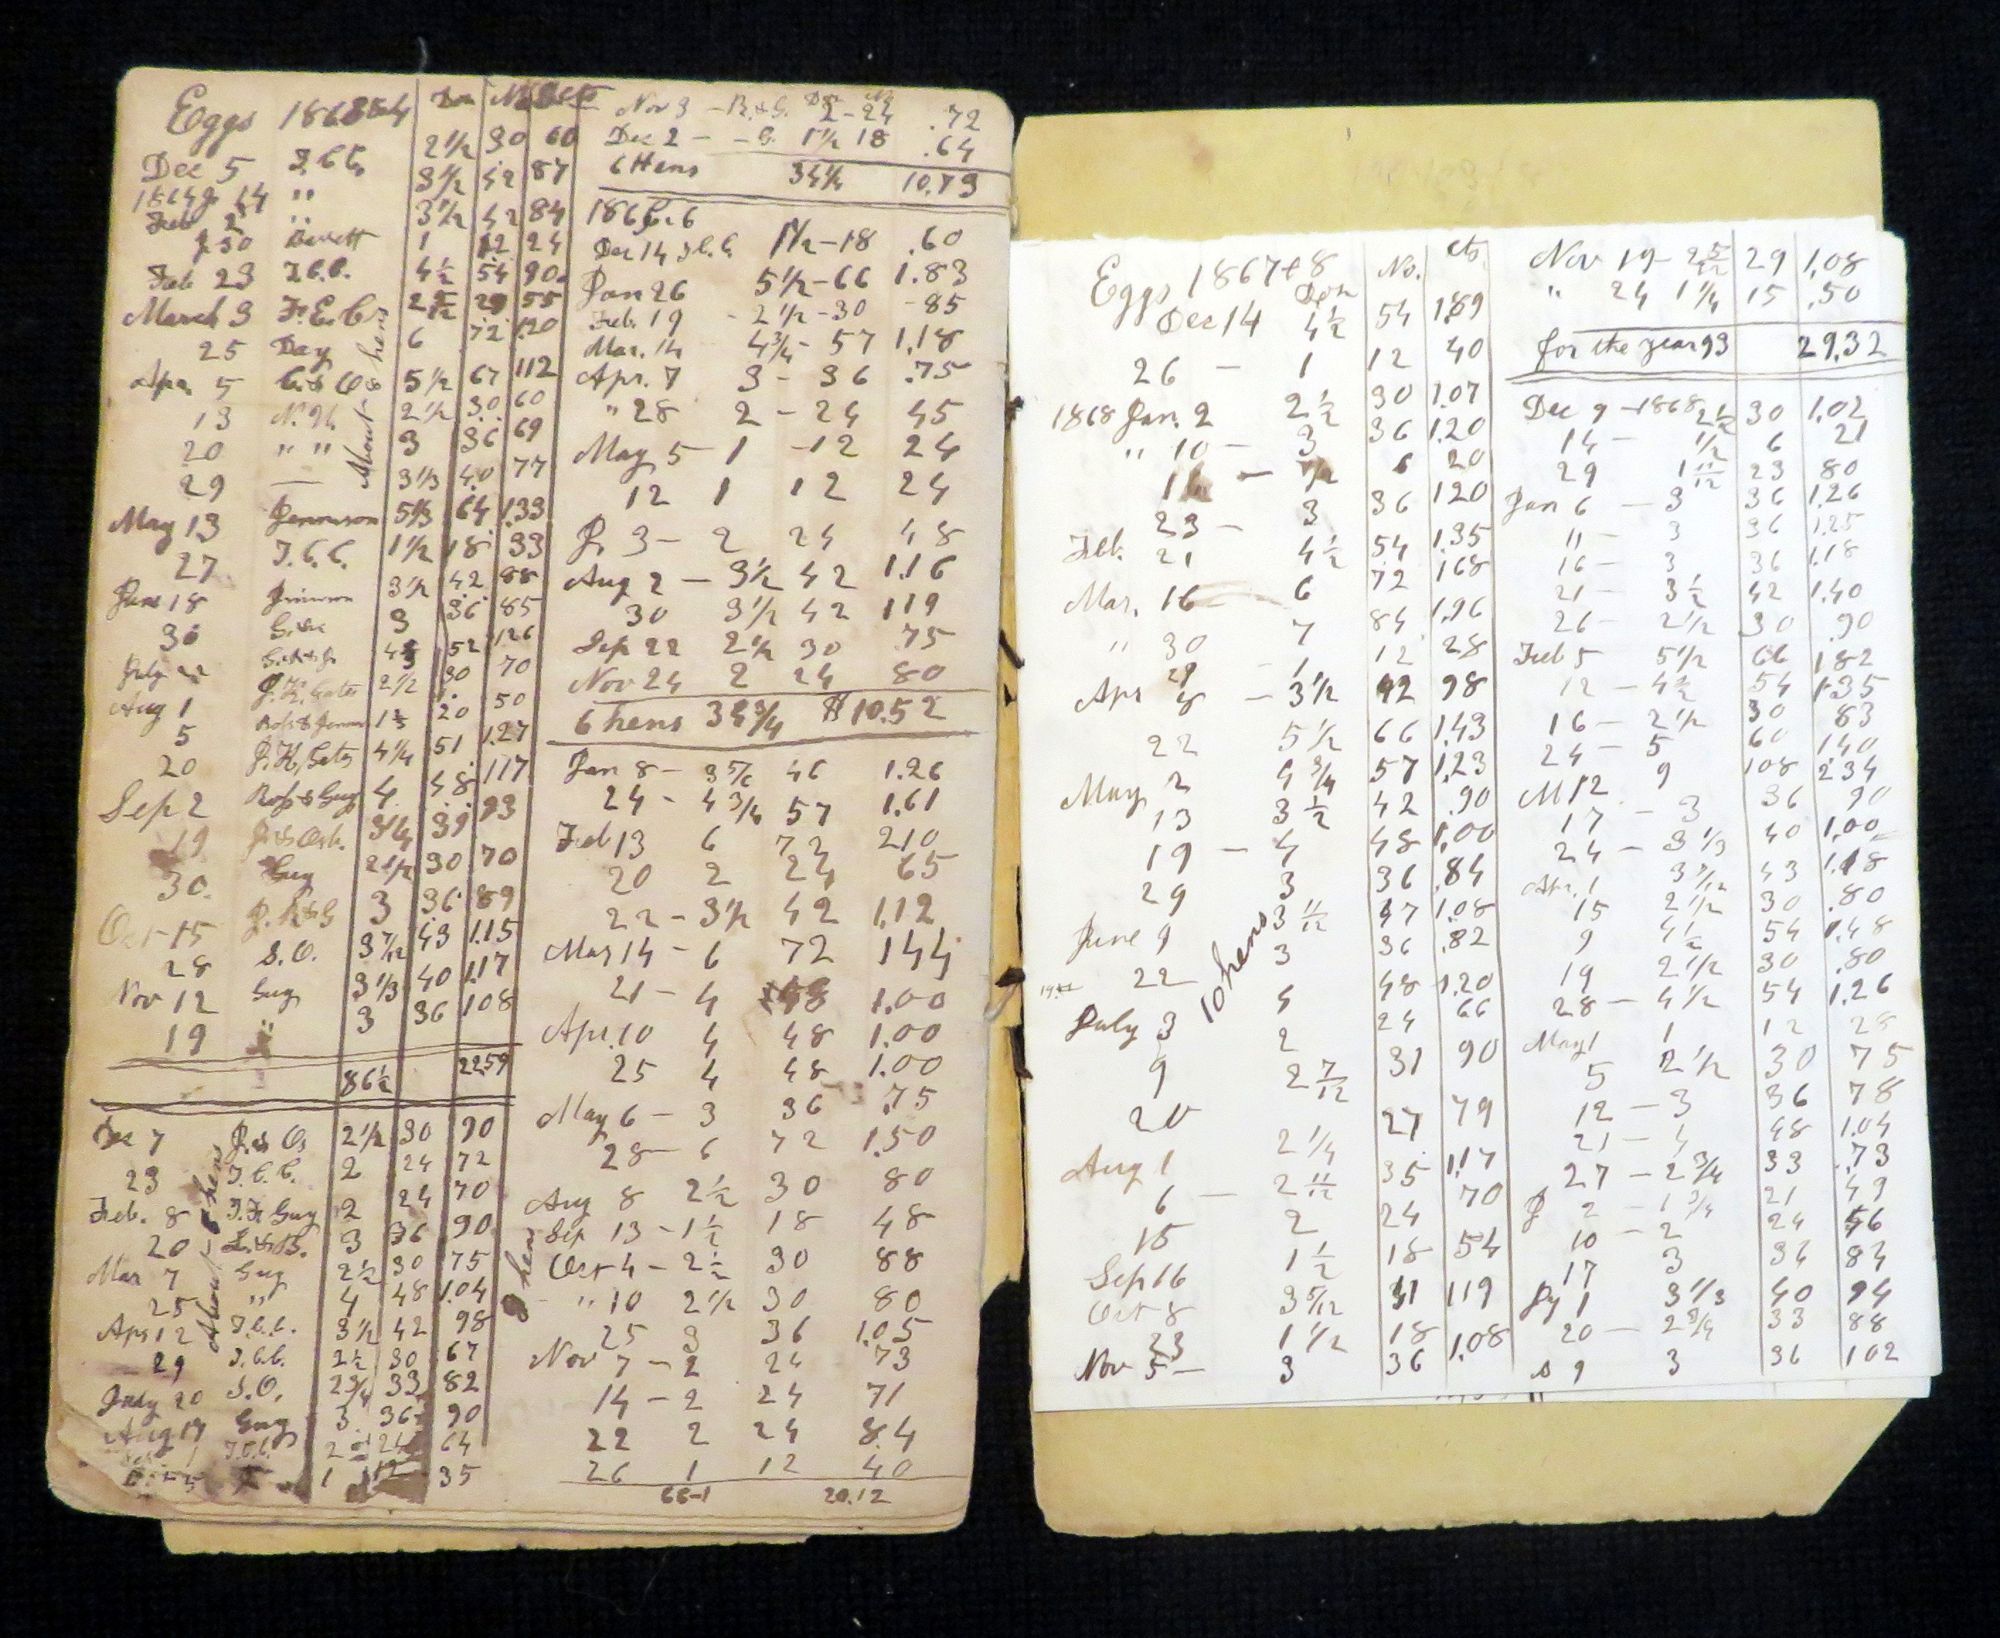 Eggs 1863&4 Doz No
Dec 5 2 1/2 30 60
3 1/2 42 87
Feb 2 " 3 1/2 42 84
J 30 Barrett 1 12 24
Feb 23 4 1/2 54 90
March 3 2 5/12 29 55
25 Day 6 72 1.20
Apr. 5 5 1/2 67 112
13 2 1/2 30 60
20 " " 3 36 69
29 — 3 1/3 40 77
May 13 Jennison 5 1/3 64 1.33
27 1 1/2 18 33
June 18 3 1/2 42 88
30 3 36 85
July 22 52 126
Aug 1 J. H. Gates 2 1/2 30 70
5 20 50
20 J. H. Gates 4 1/4 51 1.27
Sep 2 Ross & Guy 4 48 117
19 3 1/4 39 93
30. Guy 2 1/2 30 70
Oct 15 3 36 89
28 S. O. 3 7/12 43 1.15
Nov 12 Guy 3 1/3 40 1.17
19 " 3 36 108
About hens
86 1/2 22.59
Dec 7 2 1/2 30 90
23 2 24 72
Feb. 8 Guy 2 24 70
20 3 36 90
Mar 7 Guy 2 1/2 30 75
25 " 4 48 1.04
Apr 12 3 1/2 42 98
29 2 1/2 30 67
July 20 S. O. 2 3/4 33 82
Aug 17 Guy 3 36 90
2 24 64
1 12 35
About 6 hens
Nov 3 2 - 24 .72
Dec 2 — 1 1/2 18 .64
6 Hens 34 1/4 10.79
1865.6
Dec 14 1 1/2 - 18 .60
Jan 26 5 1/2 - 66 1.83
Feb. 19 - 2 1/2 - 30 85
Mar. 14 4 3/4 - 57 1.18
Apr. 7 3 - 36 .75
" 28 2 - 24 45
May 5 - 1 - 12 24
12 1 12 24
J. 3 - 2 24 48
Aug 2 — 3 1/2 42 1.16
30 3 1/2 42 119
Sep 22 2 1/2 30 .75
Nov 24 2 24 80
6 hens 34 3/4 $10.52
Jan 8 - 3 5/6 46 1.26
24 - 4 3/4 57 1.61
Feb 13 6 72 210
20 2 24 65
22 - 3 1/2 42 1.12
Mar 14 - 6 72 144
21 - 4 48 1.00
Apr. 10 4 48 1.00
25 4 48 1.00
May 6 - 3 36 .75
28 - 6 72 1.50
Aug 8 2 1/2 30 80
Sep 13 - 1 1/2 18 48
Oct 4 - 2 1/2 30 88
" 10 2 1/2 30 80
25 3 36 1.05
Nov 7 - 2 24 73
14 - 2 24 71
22 2 24 8.4
26 1 12 40
hens
66-1 20.12
Eggs 1867 & 8 Doz No. cts
Dec 14 4 1/2 54 1.89
26 - 1 12 40
1868 Jan. 2 2 1/2 30 1.07
" 10 - 3 36 1.20
16 - 1/2 6 20
23 - 3 36 120
Feb. 21 4 1/2 54 1.35
Mar. 16 6 72 168
" 30 7 84 1.96
29 - 1 12 28
Apr 8 - 3 1/2 42 98
22 5 1/2 66 1.43
May 2 4 3/4 57 1.23
13 3 1/2 42 .90
19 - 4 48 1.00
29 3 36 .84
June 9 3 11/12 47 1.08
22 3 36 .82
4 48 1.20
July 3 2 24 66
9 2 7/12 31 90
20 2 1/4 27 79
Aug 1 2 11/12 35 1.17
6 — 2 24 70
15 1 1/2 18 54
Sep 16 3 5/12 41 119
Oct 8 1 1/2 18
23
Nov 5 — 3 36 1.08
10 hens
Nov 19 - 2 5/12 29 1.08
" 24 1 1/4 15 .50
for the year 93 29.32
Dec 9 - 1868 2 1/2 30 1.02
14 - 1/2 6 21
29 1 11/12 23 80
Jan 6 - 3 36 1.26
11 - 3 36 1.25
16 - 3 36 1.18
21 - 3 1/2 42 1.40
26 - 2 1/2 30 .90
Feb 5 5 1/2 66 1.82
12 - 4 1/2 54 1.35
16 - 2 1/2 30 83
24 - 5 60 140
M 12 9 108 234
17 - 3 36 90
24 - 3 1/3 40 1.00
Apr. 1 3 7/12 43 1.18
15 2 1/2 30 .80
9 4 1/2 54 1.48
19 2 1/2 30 .80
28 - 4 1/2 54 1.26
May 1 1 12 28
5 2 1/2 30 75
12 - 3 36 78
21 - 4 48 1.04
27 - 2 3/4 33 .73
J 2 - 1 3/4 21 49
10 - 2 24 56
17 3 36 84
Jy 1 3 1/3 40 94
20 - 2 3/4 33 88
9 3 36 102